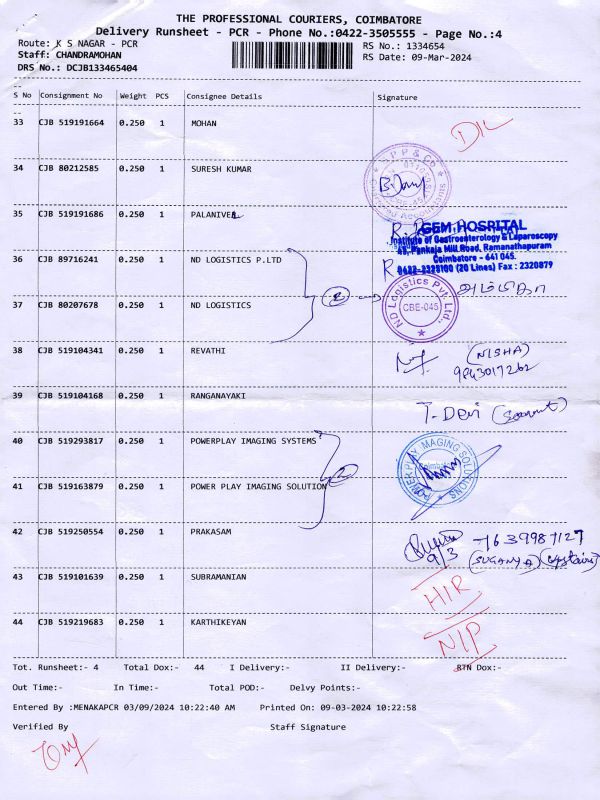 THE PROFESSIONAL COURIERS, COIMBATORE
Delivery Runsheet - PCR - Phone No.:0422-3505555 - Page No.:4
Route: K S NAGAR - PCR RS No.: 1334654
Staff: CHANDRAMOHAN RS Date: 09-Mar-2024
DRS No.: DCJB133465404
S No Consignment No Weight PCS Consignee Details Signature
33 CJB 519191664 0.250 1 MOHAN DL
34 CJB 80212585 0.250 1 SURESH KUMAR
35 CJB 519191686 0.250 1 PALANIVEL
GEM HOSPITAL
Institute of Gastroenterology & Laparoscopy
45, Pankaja Mill Road, Ramanathapuram
Coimbatore - 641 045.
0422-2325100 (20 Lines) Fax : 2320879
36 CJB 89716241 0.250 1 ND LOGISTICS P.LTD
37 CJB 80207678 0.250 1 ND LOGISTICS 2
ND Logistics Pvt. Ltd.,
CBE-045
38 CJB 519104341 0.250 1 REVATHI (NISHA)
9843017262
39 CJB 519104168 0.250 1 RANGANAYAKI T. Devi
40 CJB 519293817 0.250 1 POWERPLAY IMAGING SYSTEMS
POWERPLAY IMAGING SOLUTIONS
Coimbatore
41 CJB 519163879 0.250 1 POWER PLAY IMAGING SOLUTION 2
42 CJB 519250554 0.250 1 PRAKASAM 7639987127
9/3 (SUGANYA) (upstairs)
43 CJB 519101639 0.250 1 SUBRAMANIAN HIR
44 CJB 519219683 0.250 1 KARTHIKEYAN NIP
Tot. Runsheet:- 4 Total Dox:- 44 I Delivery:- II Delivery:- RTN Dox:-
Out Time:- In Time:- Total POD:- Delvy Points:-
Entered By :MENAKAPCR 03/09/2024 10:22:40 AM Printed On: 09-03-2024 10:22:58
Verified By Staff Signature